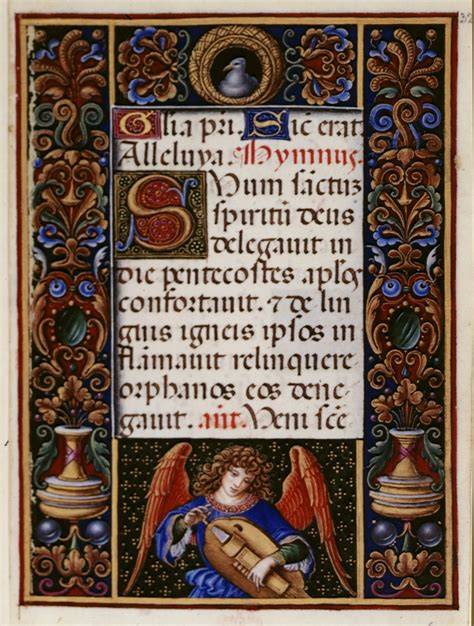 Glia pri. Sic erat
Alleluya. Hymnus.
Suum sanctuz
spiritu deus
delegauit in
die pentecostes aplos
confortauit. ⁊ de lin
guis igneis ipsos in
flamauit relinquere
orphanos eos dene
gauit. ant. Veni sce